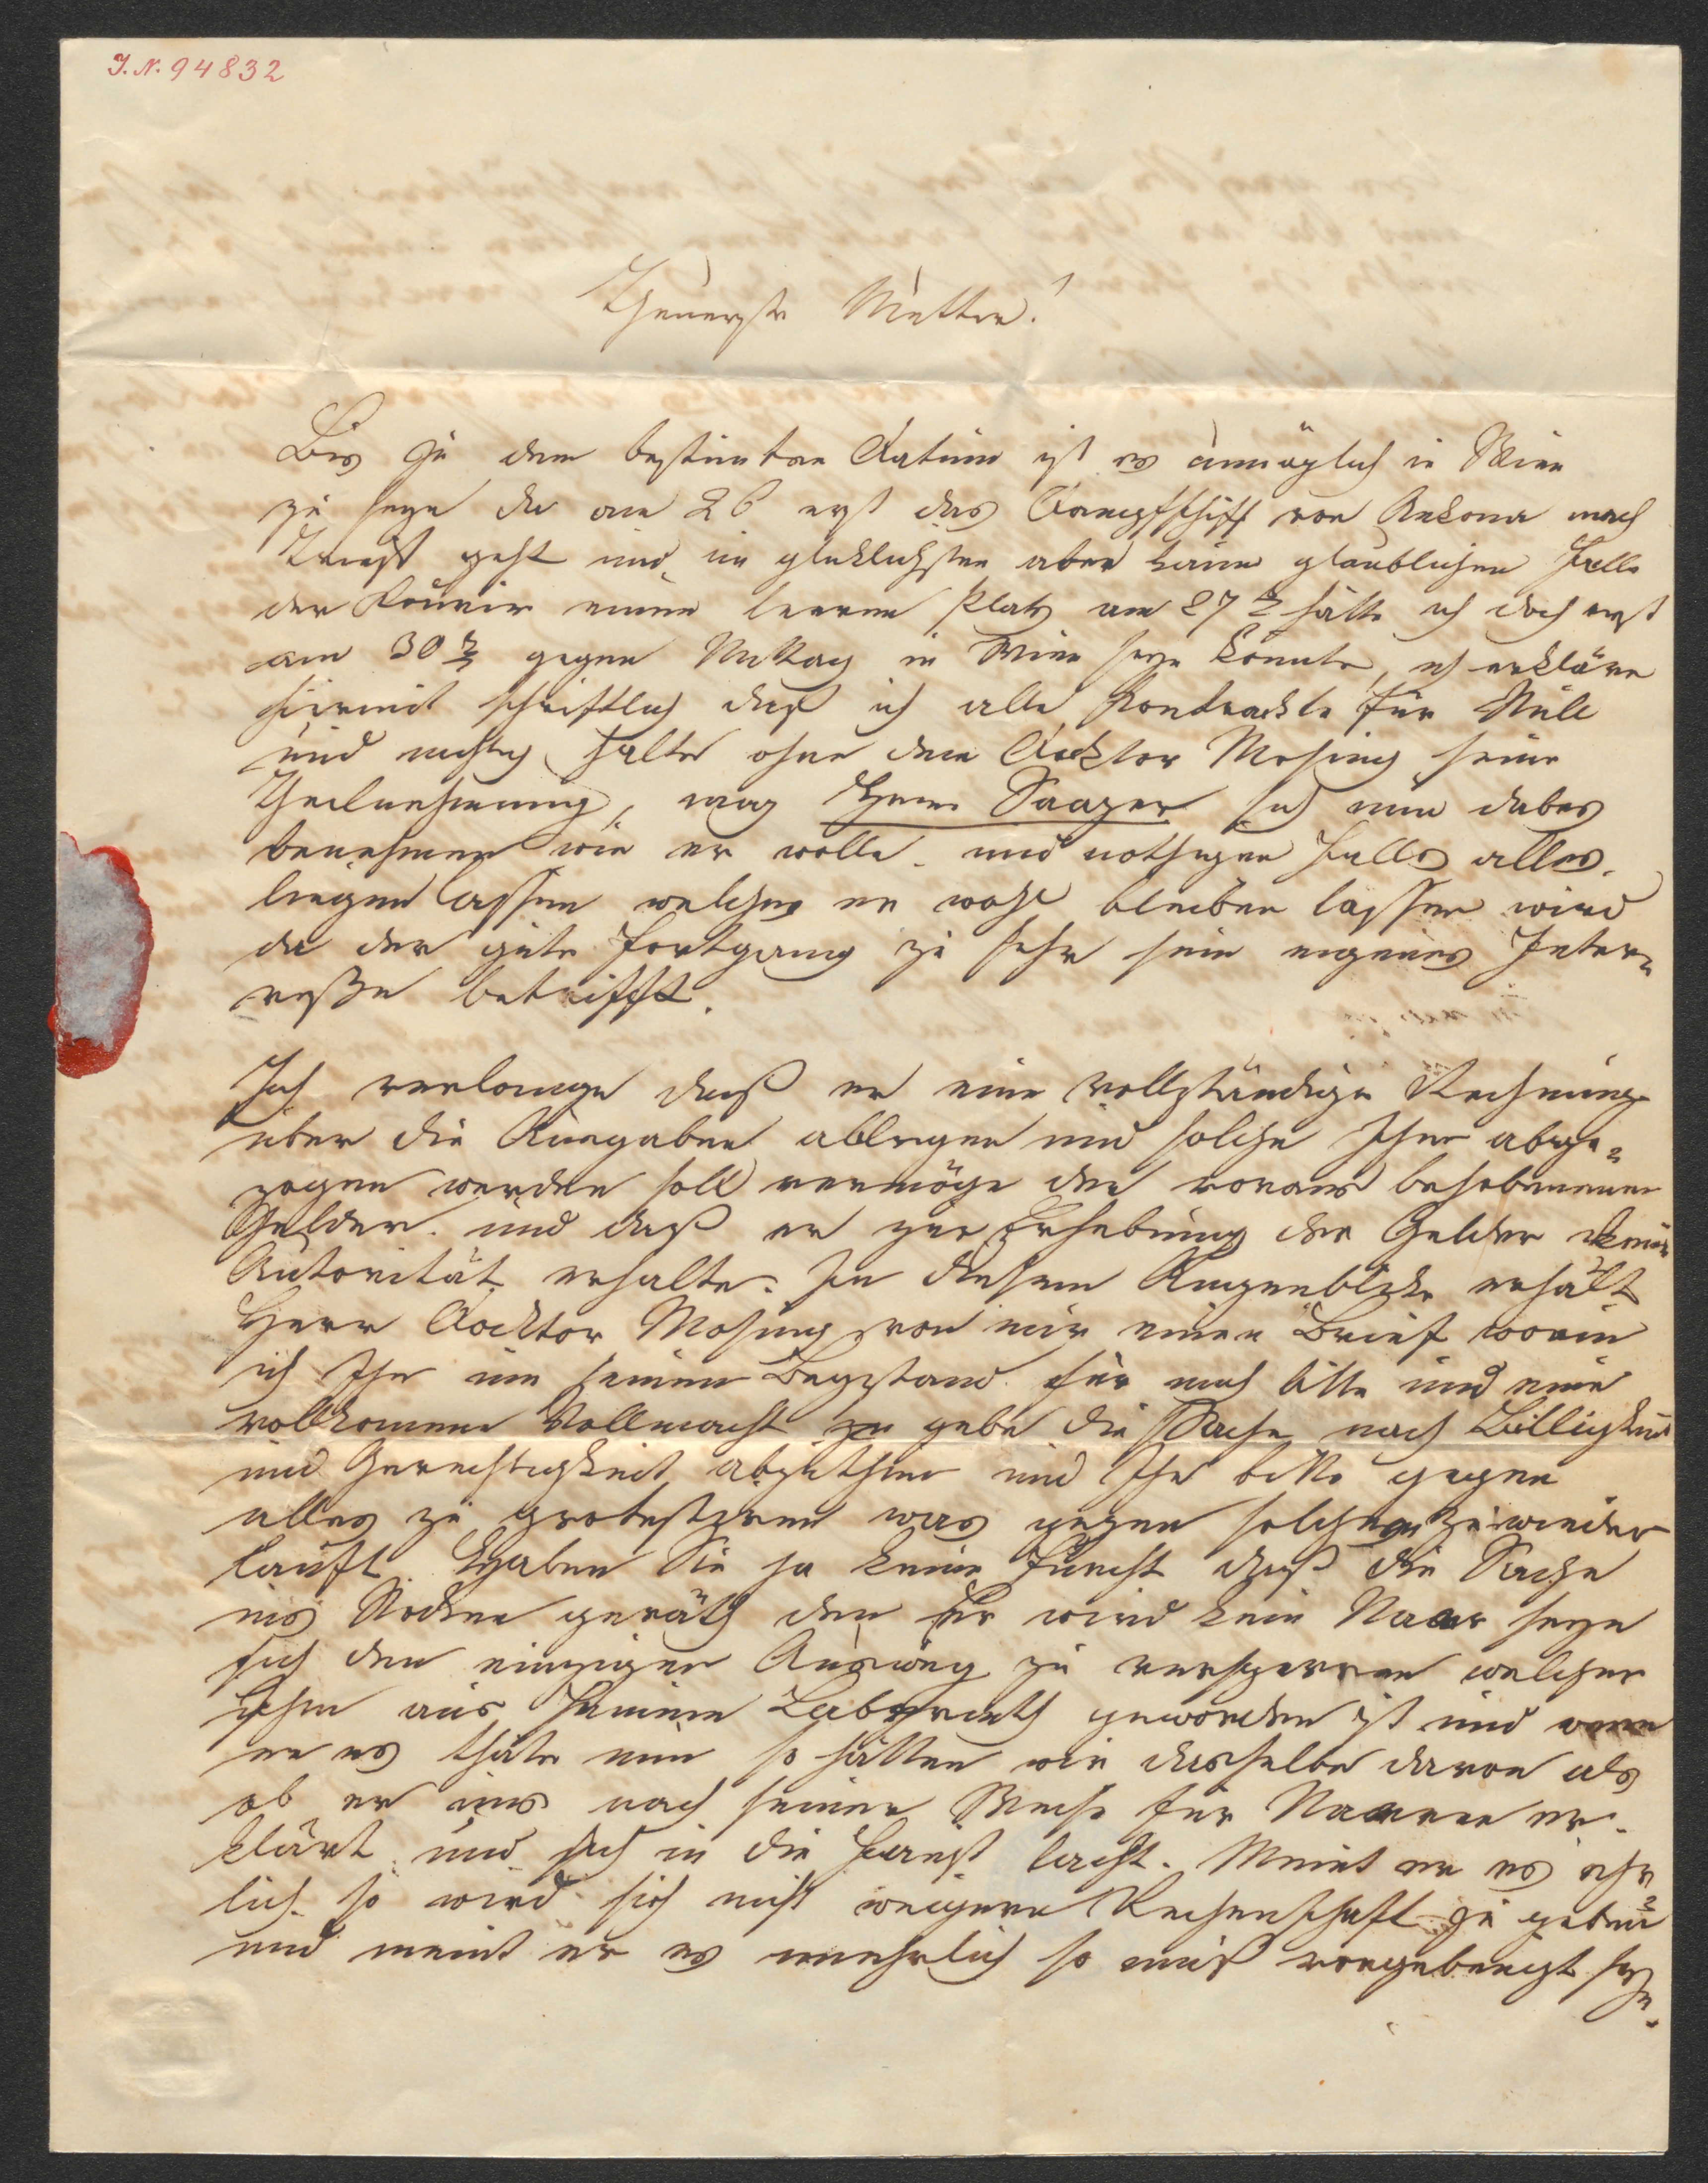 J. N. 94832
Theuerste Mutter!
Bis zu dem bestimten Datum ist es unmöglich in Wien
zu seyn da am 26 erst das Dampfschiff von Ankona nach
Triest geht und im glücklichsten aber kaum glaublichen Falle
der Kourir einen leeren Platz am 27 hätte ich doch erst
am 30 gegen Mittag in Wien seyn könnte, ich erkläre
hiermit schriftlich daß ich alle Kontrackte für Null
und nichtig halte ohne dem Docktor Mosing seine
Theilnehmung, mag Herr Saazer sich nun dabey
benehmen wie er wolle. und nothigen Falls alles.
liegen lassen welches er wohl bleiben lassen wird
da der gute Fortgang zu sehr sein eigenes Inter=
eße betrifft.
Ich verlange daß er eine vollständige Rechnung
über die Ausgaben ablegen und solche Ihm abge=
zogen werden soll vermöge der voraus behobenenen
Gelder. und daß er zur Erhebung der Gelder keine
Autorität erhalte. In diesem Augenblicke erhält
Herr Docktor Mosing von mir einen Brief worin
ich Ihn um seinen Beystand für mich bitte und eine
vollkomene Vollmacht zu gebe die Sache nach Billigkeit
und Gerechtigkeit abzuthun und Ihn bitte gegen
alles zu protestiren was gegen solches zuwieder
lauft. Haben Sie ja keine Furcht daß die Sache
ins Stocken geräth den Er wird kein Narr seyn
sich den einzigen Ausweg zu versperren welcher
ihm aus seinem Labyrinth geworden ist und wenn
er es thäte nun so hätten wir dasselbe davon als
ob er uns nach seiner Weise für Narren er=
klärt und sich in die Faust lacht. Meint er es ehr=
lich so wird sich nicht weigern Rechenschaft zu geben
und meint er es unehrlich so muß vorgebeugt seyn.